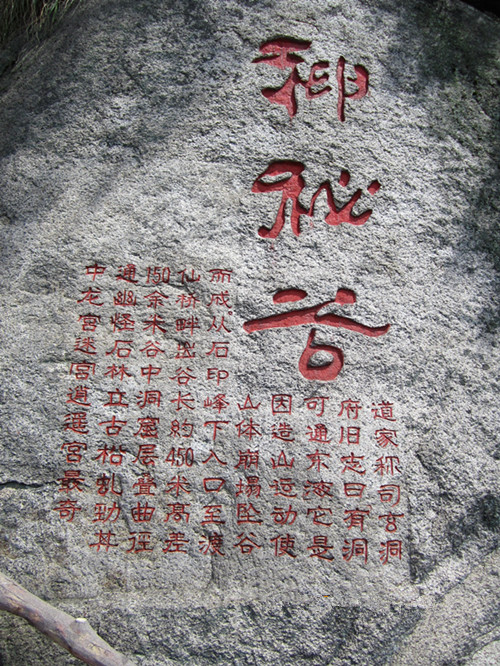 神秘谷
道家称司玄洞
府旧志曰有洞
可通东海它是
因造山运动使
山体崩塌坠谷
而成从石印峰下入口至渡
仙桥畔出谷长約450米高差
150余米谷中洞窟层叠曲径
通幽怪石林立古松虬劲其
中龙宫迷宫逍遥宫最奇